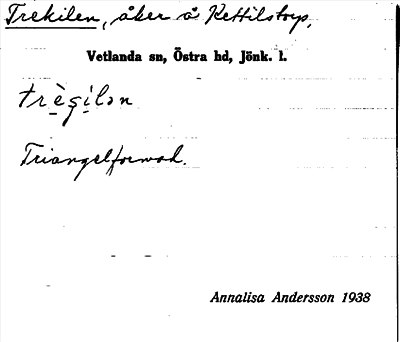 Trekilen, åker å Kettilstorp,
Vetlanda sn, Östra hd, Jönk. l.
trèg̨ilən
Triangelformad.
Annalisa Andersson 1938